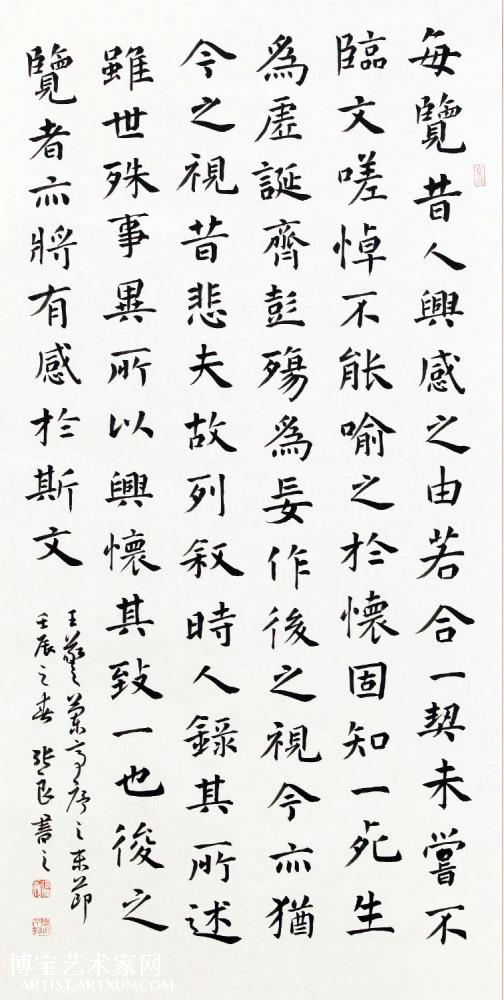 每覽昔人興感之由若合一契未嘗不
臨文嗟悼不能喻之於懷固知一死生
爲虛誕齊彭殤爲妄作後之視今亦猶
今之視昔悲夫故列叙時人錄其所述
雖世殊事異所以興懷其致一也後之
覽者亦將有感於斯文
王羲之蘭亭序之末節
壬辰之春 張良書之
博宝艺术家网
ARTIST.ARTXUN.COM